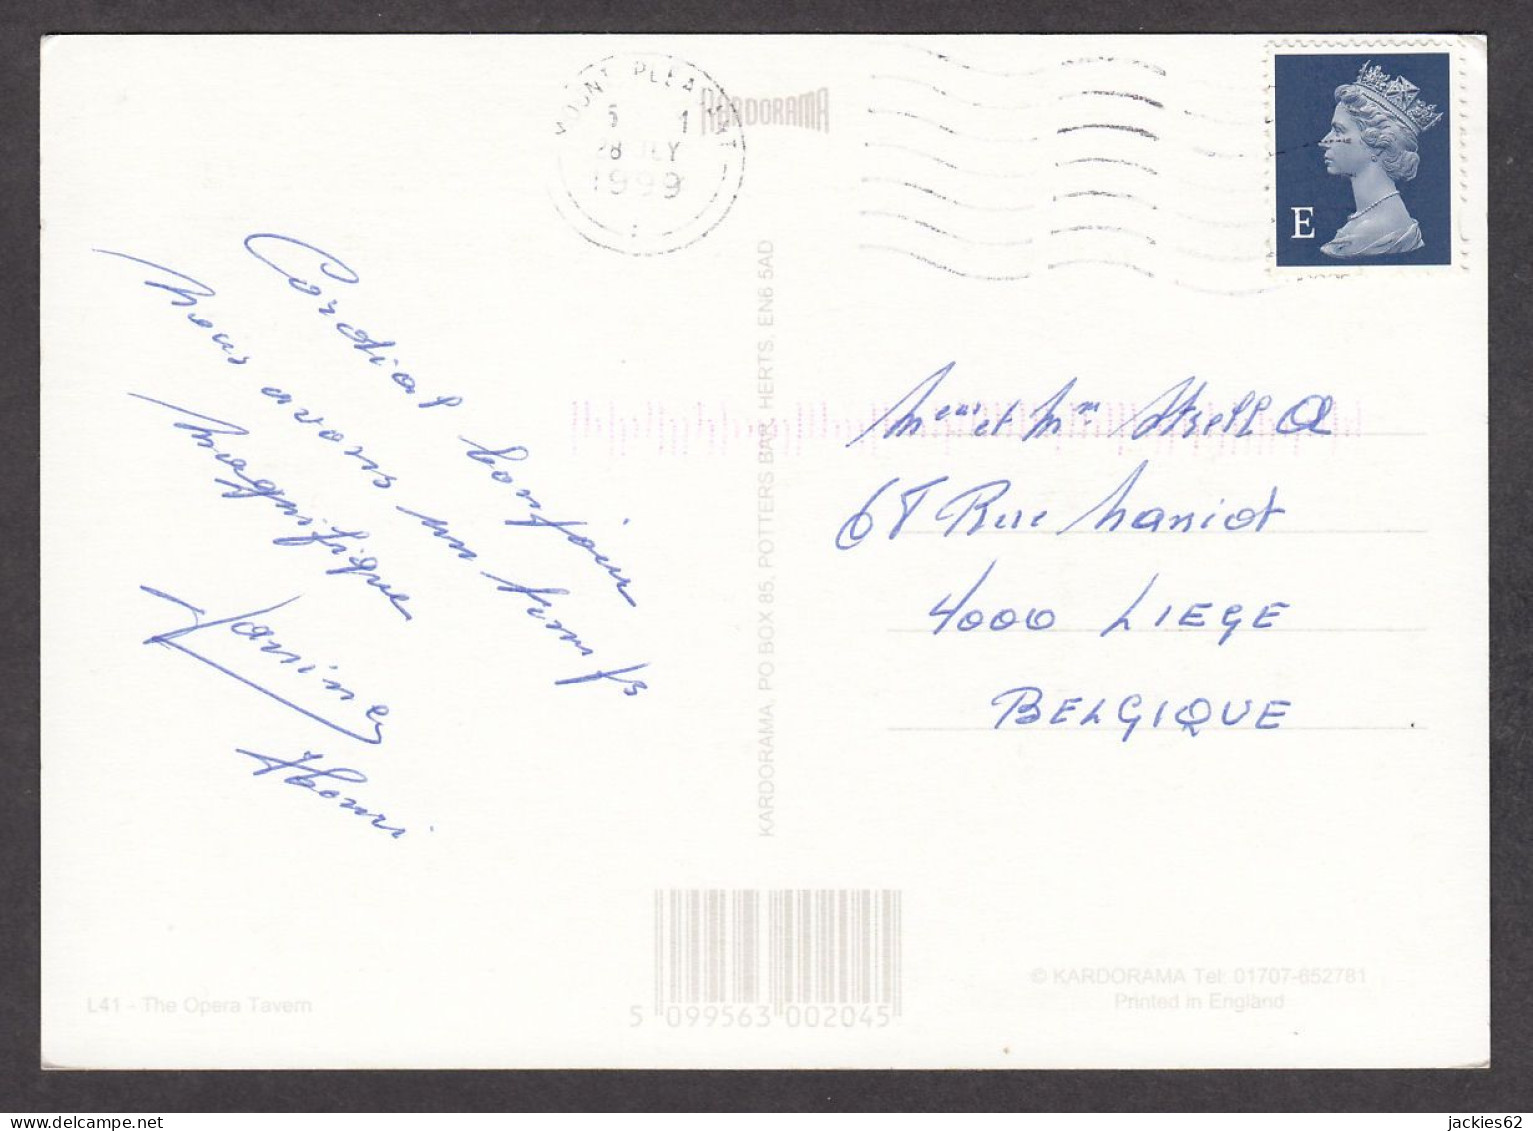 MOUNT PLEASANT
1
28 JLY
1999
KARDORAMA
E
Cordial bonjour
Nous avons un temps
magnifique
Janine
Meur et Mm
68 Rue Naniot
4000 LIEGE
BELGIQUE
KARDORAMA, PO BOX 85, POTTERS BAR, HERTS, EN6 5AD
L41 - The Opera Tavern
5 099563 002045
© KARDORAMA Tel: 01707-652781
Printed in England
jackies62